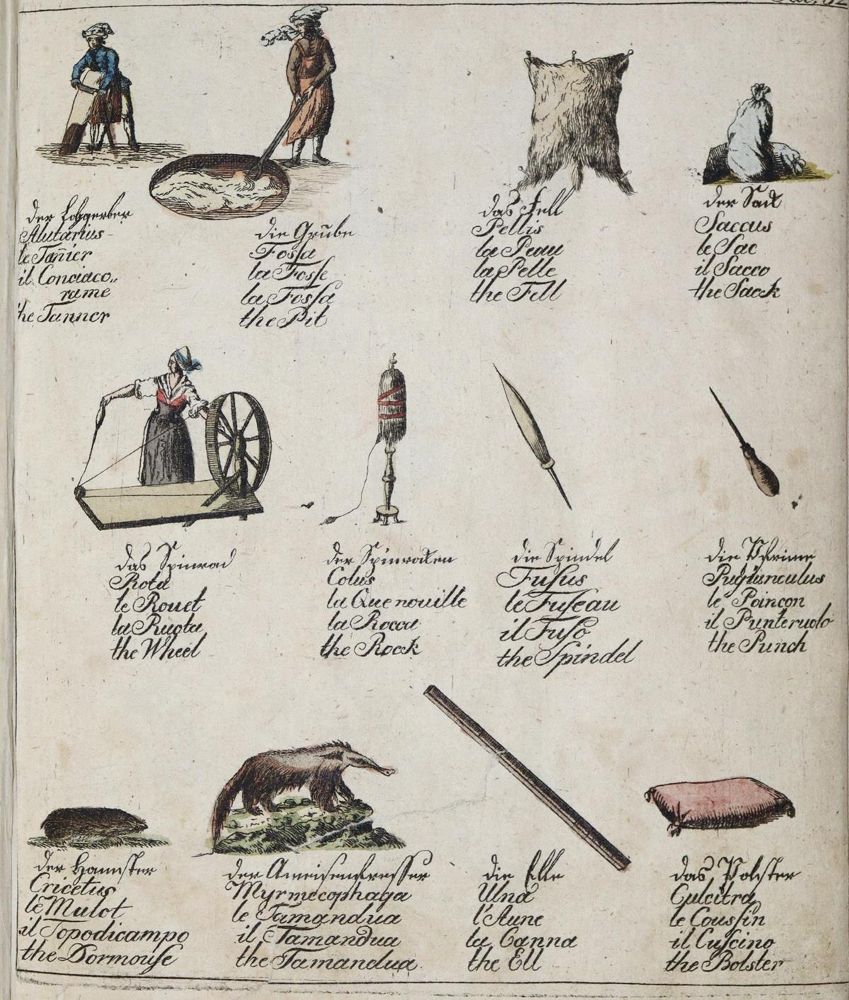 der Lohgerber
Alutarius
le Tanier
il Conciaco„
rame
the Tanner
die Grube
Fossa
la Fosse
la Fossa
the Pit
das Fell
Pellis
la Peau
la Pelle
the Fell
der Sack
Saccus
le Sac
il Sacco
the Sack
das Spinrad
Rota
le Rouet
la Ruota
the Wheel
der Spinrocken
Colus
la Quenouille
la Rocca
the Rock
die Spindel
Fusus
le Fuseau
il Fuso
the Spindel
die Pfrime
Pugiunculus
le Poincon
il Punteruolo
the Punch
der Hamster
Cricetus
le Mulot
il Topodicampo
the Dormouse
der Ameisenfresser
Myrmecophaga
le Tamandua
il Tamandua
the Tamandua
die Elle
Ulna
l'Aune
la Canna
the Ell
das Polster
Culcitra
le Coussin
il Cuscino
the Bolster